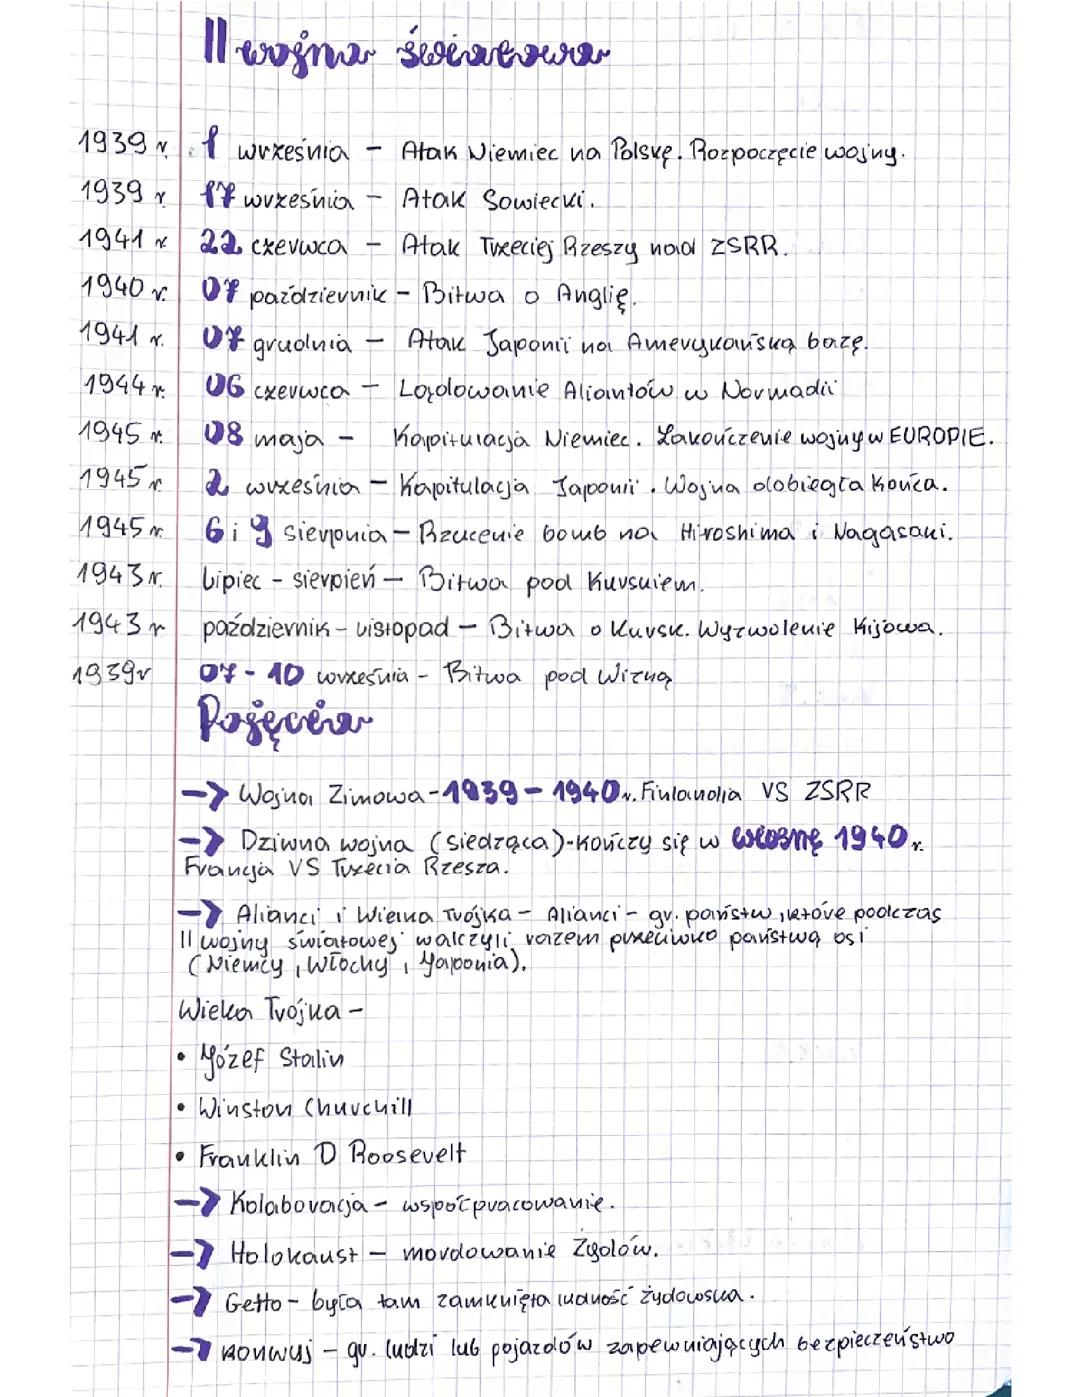 II wojna światowa
1939 r. 1 września - Atak Niemiec na Polskę. Rozpoczęcie wojny.
1939 r 17 września - Atak Sowiecki.
1941 r 22 czerwca - Atak Trzeciej Rzeszy nad ZSRR.
1940 r. 07 październik - Bitwa o Anglię.
1941 r. 07 grudnia - Atak Japonii na Amerykańską bazę.
1944 r. 06 czerwca - Lądowanie Aliantów w Normadii
1945 r. 08 maja - Kapitulacja Niemiec. Zakończenie wojny w EUROPIE.
1945 r. 2 września - Kapitulacja Japonii. Wojna dobiegła końca.
1945 r. 6 i 9 sierpnia - Rzucenie bomb na Hiroshima i Nagasaki.
1943 r. lipiec - sierpień - Bitwa pod Kurskiem.
1943 r październik - listopad - Bitwa o Kursk. Wyzwolenie Kijowa.
1939r 07 - 10 września - Bitwa pod Wizną
Pojęcia
-> Wojna Zimowa - 1939 - 1940 r. Finlandia VS ZSRR
-> Dziwna wojna (siedząca) - kończy się w wiosnę 1940 r.
Francja VS Trzecia Rzesza.
-> Alianci i Wielka Trójka - Alianci - gr. państw, które podczas
II wojny światowej walczyli razem przeciwko państwą osi
(Niemcy, Włochy, Japonia).
Wielka Trójka -
• Józef Stalin
• Winston Churchill
• Franklin D Roosevelt
-> Kolaboracja - współpracowanie.
-> Holokaust - mordowanie Żydów.
-> Getto - była tam zamknięta ludność żydowska.
-> konwuj - gr. ludzi lub pojazdów zapewniających bezpieczeństwo